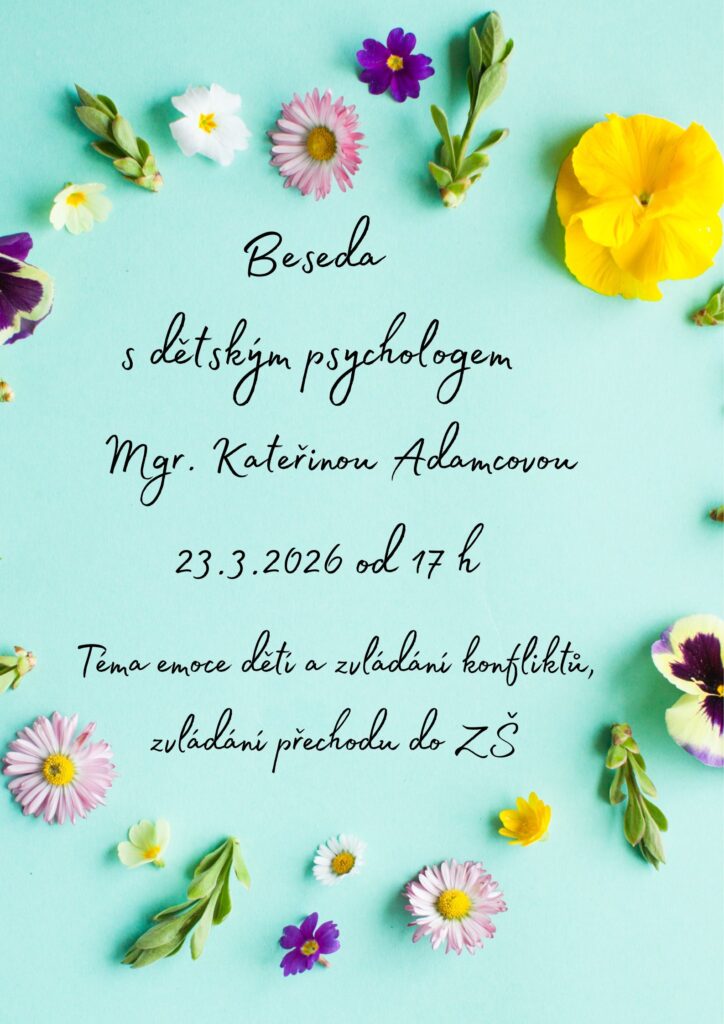 Beseda
s dětským psychologem
Mgr. Kateřinou Adamcovou
23.3.2026 od 17 h
Téma emoce dětí a zvládání konfliktů,
zvládání přechodu do ZŠ